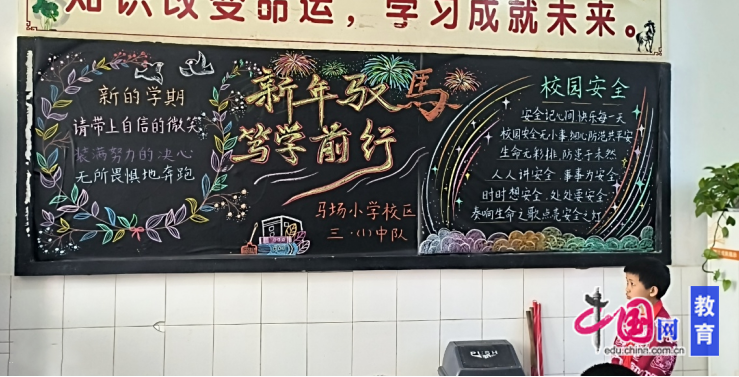 知识改变命运，学习成就未来。
新的学期
请带上自信的微笑
装满努力的决心
无所畏惧地奔跑
新年驭馬
笃学前行
马场小学校区
三·(1)中队
校园安全
安全记心间快乐每一天
校园安全无小事细心防范共平安
生命无彩排,防患于未然
人人讲安全,事事为安全
时时想安全,处处要安全
奏响生命之歌点亮安全之灯
PUSH
中国网
edu.china.com.cn
教育